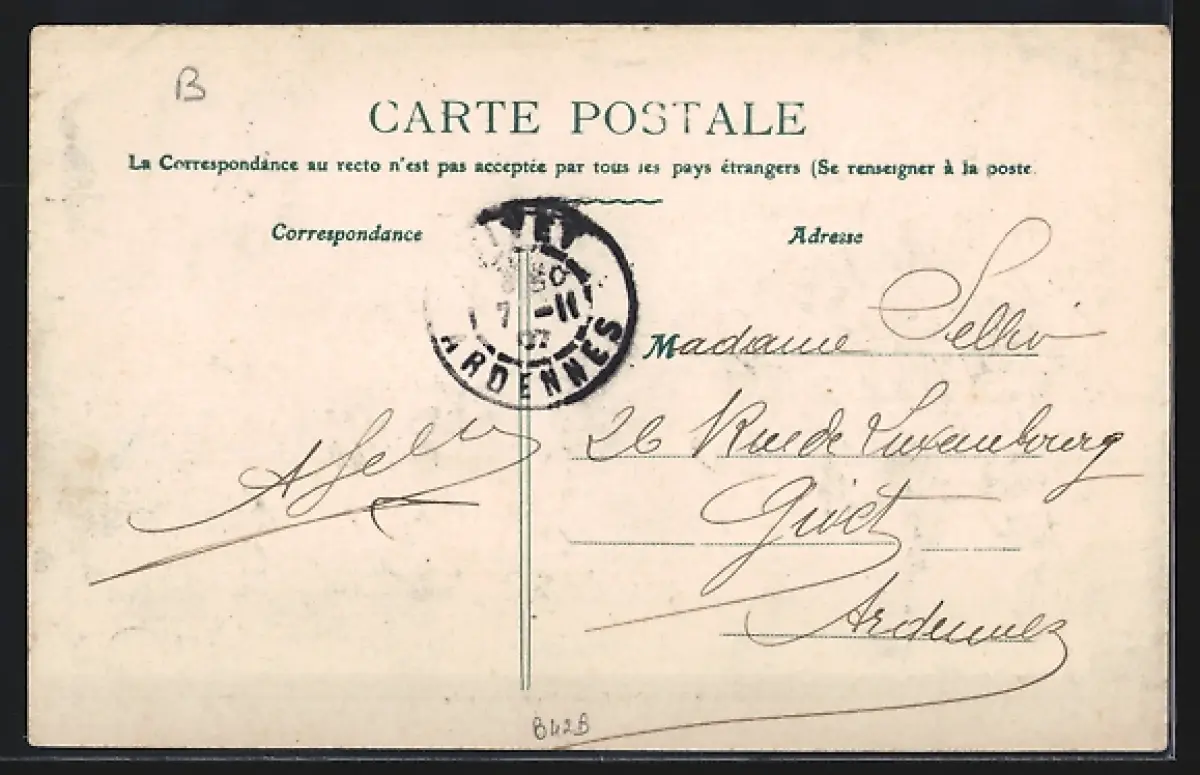 B
CARTE POSTALE
La Correspondance au recto n'est pas acceptée par tous les pays étrangers (Se renseigner à la poste
Correspondance
Adresse
7 -11
07
ARDENNES
Madame
26 Rue de Luxembourg
Givet
Ardennes
B42B